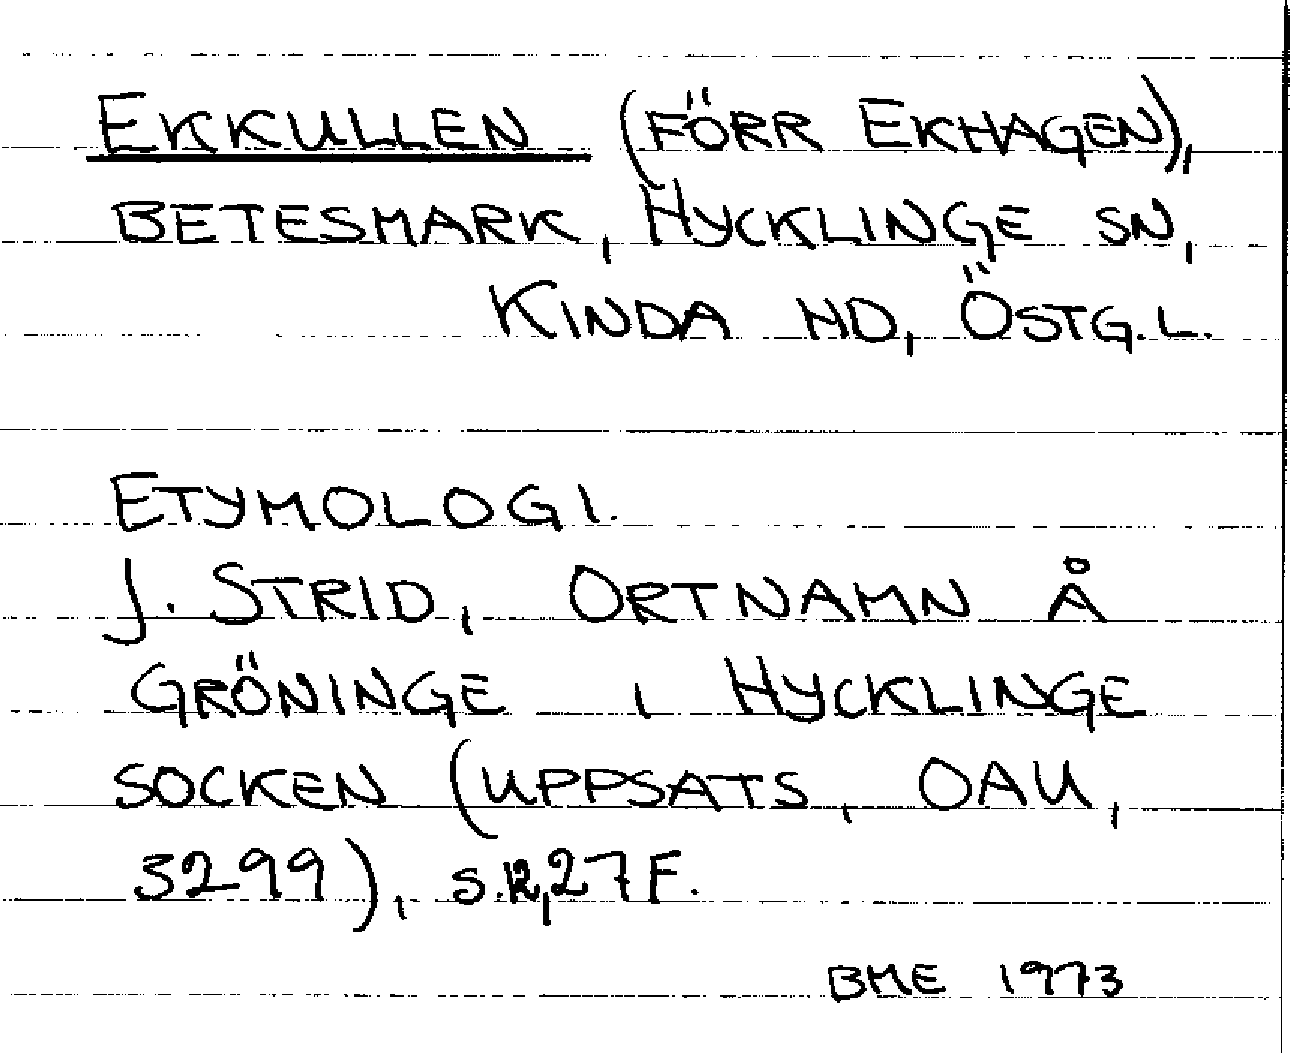 EKKULLEN (FÖRR EKHAGEN),
BETESMARK, HYCKLINGE SN,
KINDA HD, ÖSTG.L.
ETYMOLOGI.
J. STRID, ORTNAMN Å
GRÖNINGE I HYCKLINGE
SOCKEN (UPPSATS, OAU,
3299), S.12,27F.
BME 1973